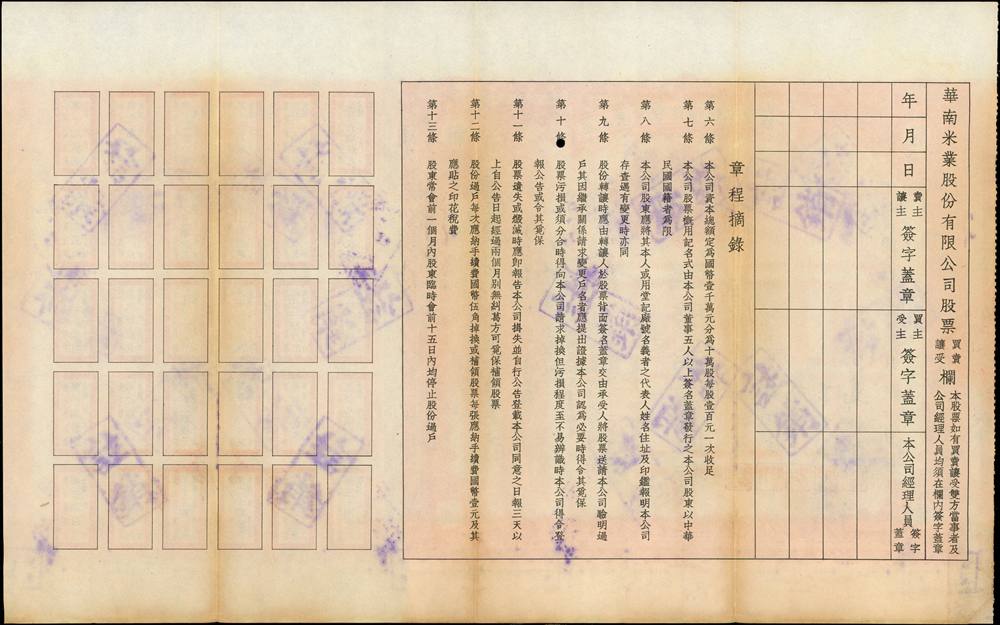 華南米業股份有限公司股票
買賣
讓受
欄
本股票如有買賣讓受雙方當事者及
公司經理人員均須在欄內簽字蓋章
年
月
日
賣主
讓主
簽字蓋章
買主
受主
簽字蓋章
本公司經理人員
簽字
蓋章
章程摘錄
第六條 本公司資本總額定為國幣壹千萬元分為十萬股每股壹百元一次收足
第七條 本公司股票概用記名式由本公司董事五人以上簽名蓋章發行之本公司股東以中華
民國國籍者為限
第八條 本公司股東應將其本人或用堂記廠號名義者之代表人姓名住址及印鑑報明本公司
存查遇有變更時亦同
第九條 股份轉讓時應由轉讓人於股票背面簽名蓋章交由承受人將股票送請本公司驗明過
戶其因繼承關係請求變更戶名者應提出證據本公司認為必要時得令其覓保
第十條 股票污損或須分合時得向本公司請求掉換但污損程度至不易辨識時本公司得令登
報公告或令其覓保
第十一條 股票遺失或燬滅時應即報告本公司掛失並自行公告登載本公司同意之日報三天以
上自公告日起經過兩個月別無糾葛方可覓保補領股票
第十二條 股份過戶每次應納手續費國幣伍角掉換或補領股票每張應納手續費國幣壹元及其
應貼之印花稅費
第十三條 股東常會前一個月內股東臨時會前十五日內均停止股份過戶